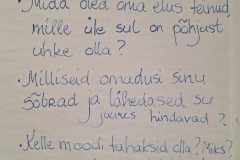 • Mida oled oma elus teinud,
mille üle sul on põhjust
uhke olla?
• Milliseid omadusi sinu
sõbrad ja lähedased su
juures hindavad?
• Kelle moodi tahaksid olla? Miks?